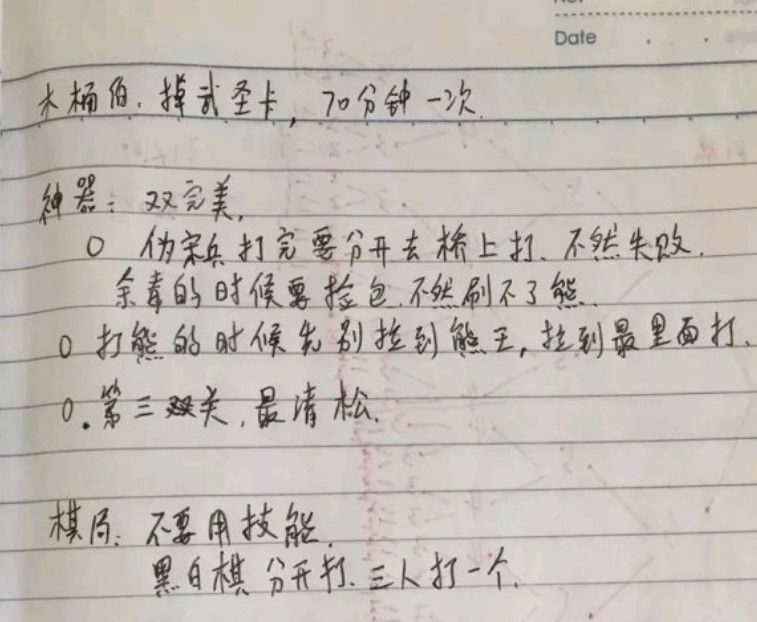 Date
木桶伯.掉武圣卡,70分钟一次.
神器:双完美,
O 伪宋兵打完要分开去桥上打、不然失败.
余毒的时候要捡包.不然刷不了熊.
O 打熊的时候先别拉到熊王,拉到最里面打.
O.第三关,最清松.
棋局:不要用技能.
黑白棋分开打.三人打一个.